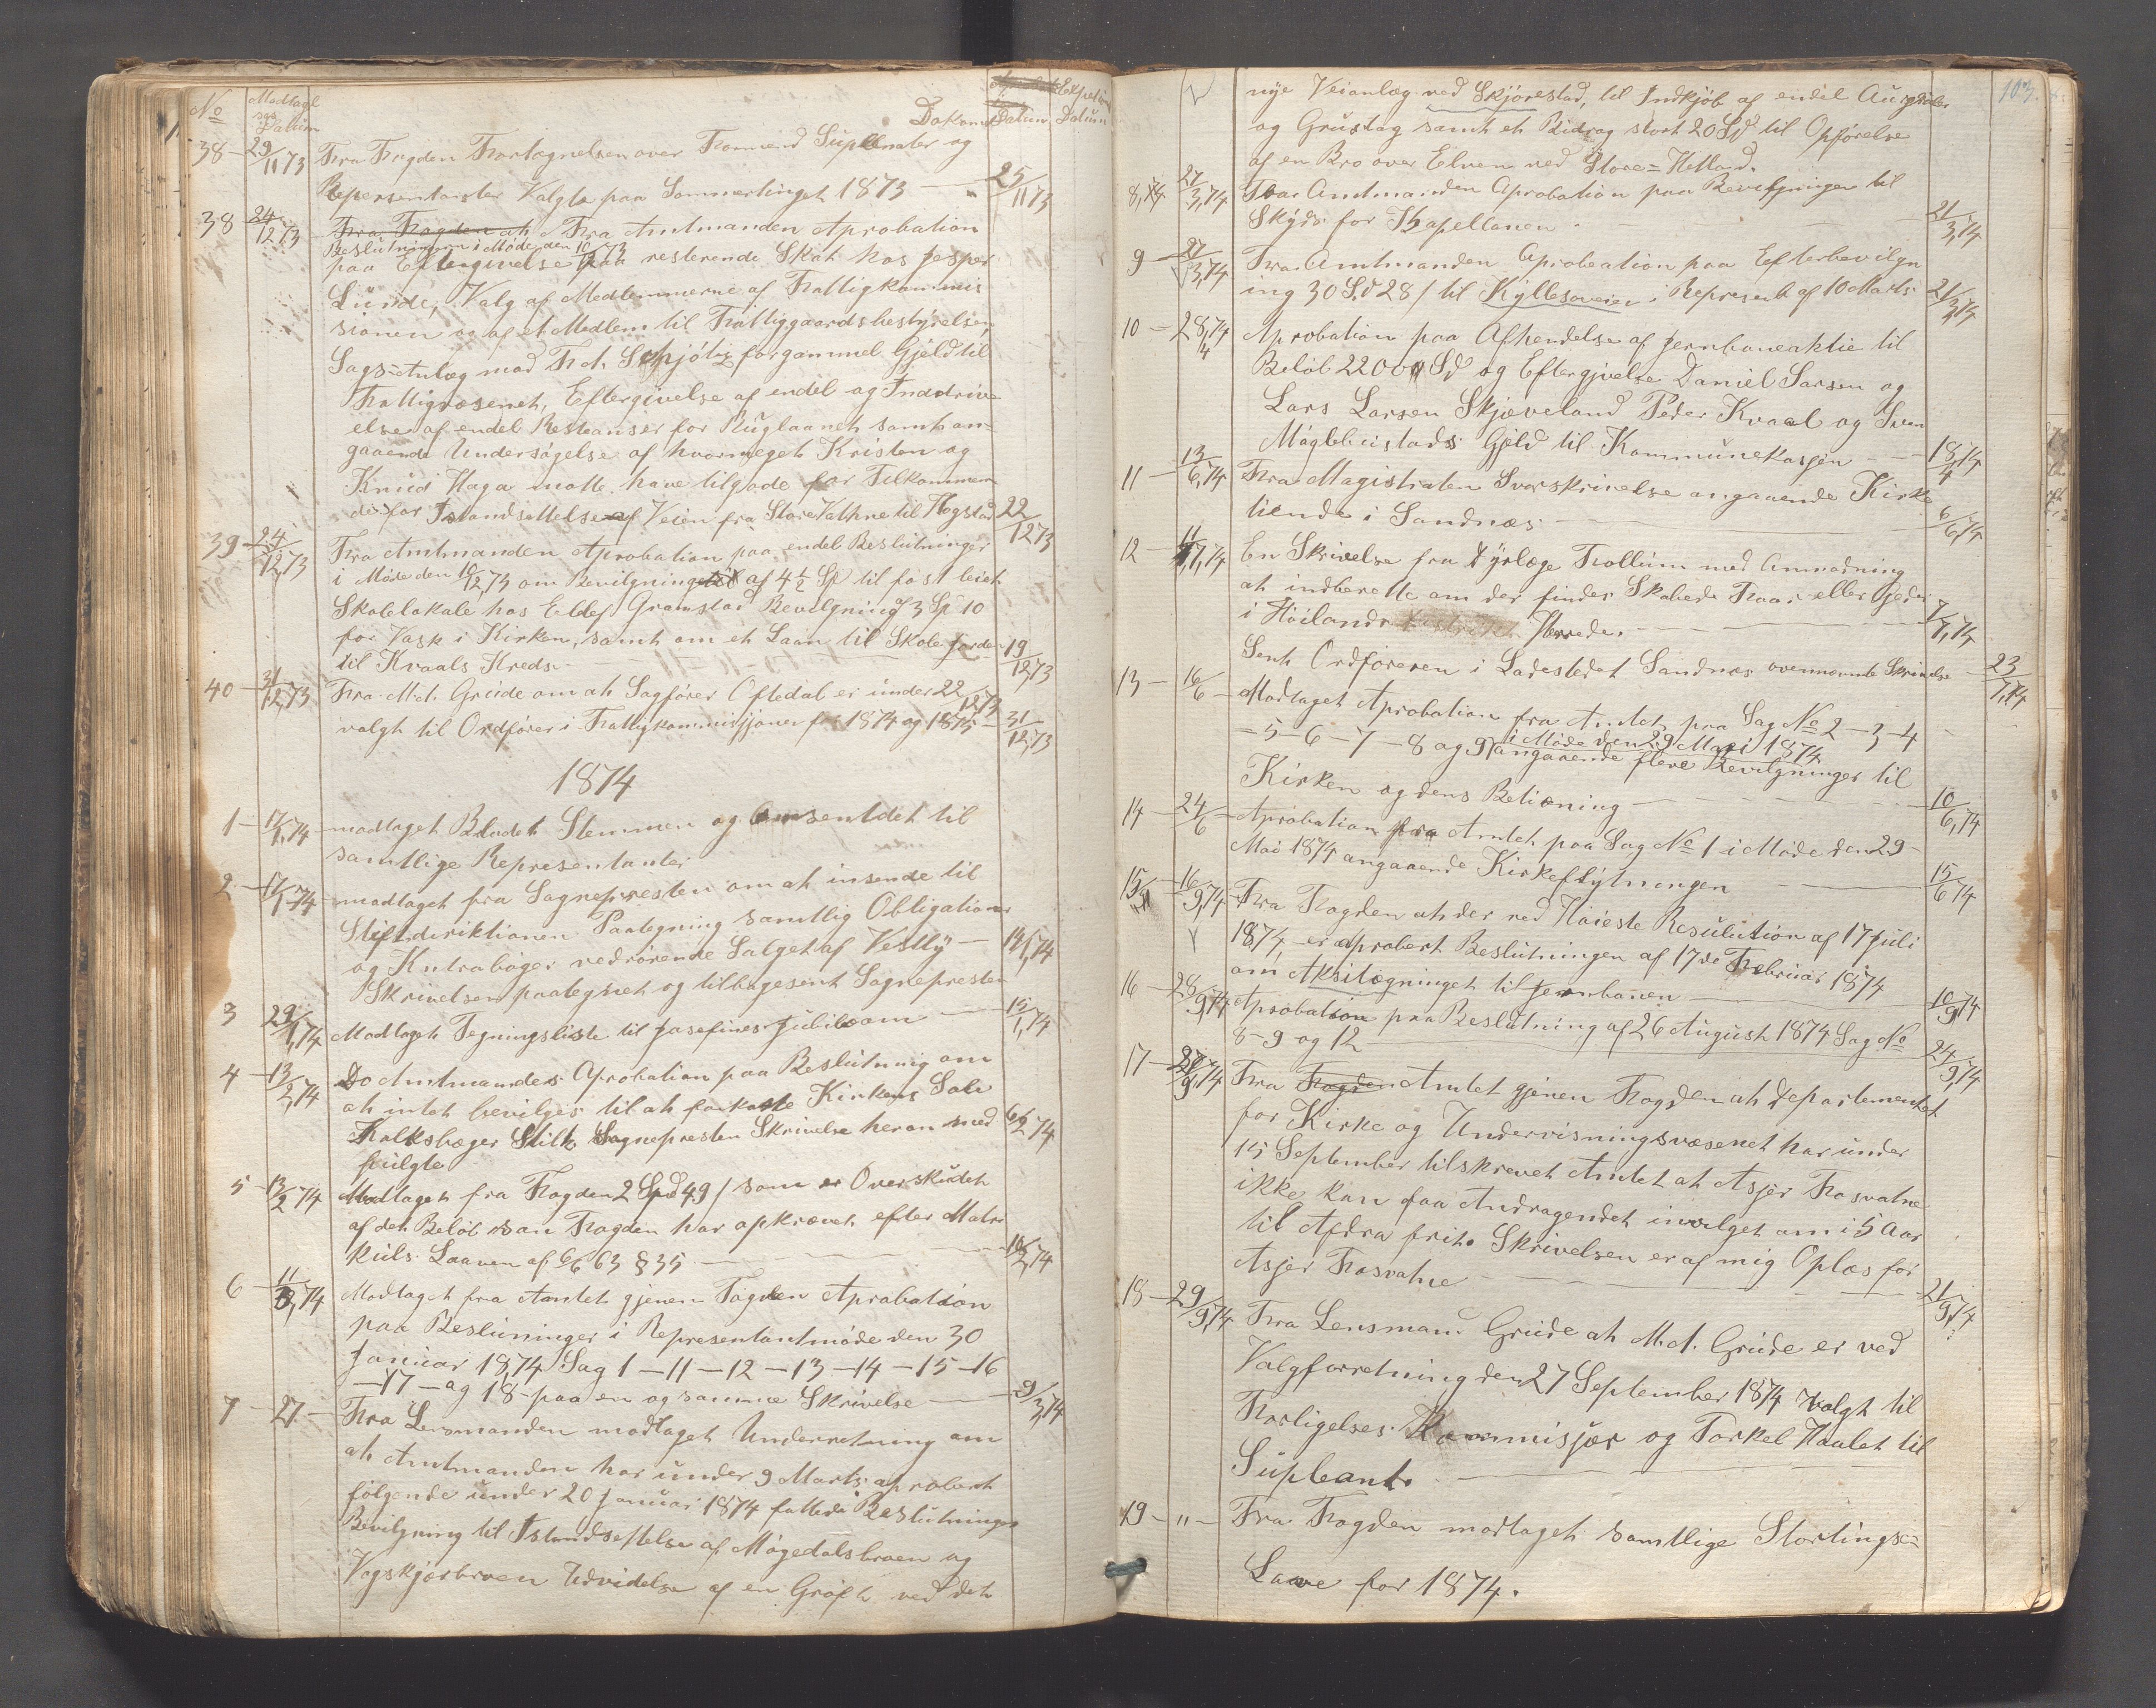 No
Modtagl
ses
Datum
Dokom
Datum
Expedi
Datum
38 29/11 73 Fra Fogden Fortegnelsen over Formænd Suplenter og
Repersentanter Valgte paa Sommertinget 1873 25/11 73
38 24/12 73 Fra Fogden at Fra Amtmanden Aprobation
Beslutningen i Møde den 10/12 73
paa Eftergivelse paa resterende Skat hos Jesper
Lunde, Valg af Medlemmerne af Fattigkommis
sionen og af et Medlem til Fattiggaardsbestyrelsen
Sags=Anlæg mod Fr. A. Schjötz for gammel Gjeld til
Fattigvæsenet, Eftergivelse af endel og Inddrive
else af endel Restanser for Ruglaanet samt an=
gaaende Undersøgelse af hvormeget Kristen og
Knud Haga matte have tilgode for Tilkommen
de for Istandsættelse af Veien fra Store Vathne til Hogstad 22/12 73
39 24/12 73 Fra Amtmanden Aprobation paa endel Beslutninger
i Møde den 10/12 73 om Bevilgning af 4 1/2 Sp til fast leiet
Skolelokale hos Eldef Gramstad Bevilgning af 3 Sp 10
for Vask i Kirken, samt om et Laan til Skole jorde
til Kvaals Kreds 19/12 73
40 31/12 73 Fra M. A. Grude om at Sagfører Oftedal er under 22/12 73
valgt til Ordfører i Fattigkommissjonen for 1874 og 1875 31/12 73
1874
1 17/1 74 modtaget Bladet Stemmen og omsendt det til
samtlige Representanter
2 17/1 74 modtaget fra Sognepresten om at insende til
Stiftsdiriktionen Paategning samtlig Obligationer
og Kntrabøger vedrørende Salget af Vestly 14/1 74
Skrivelsen paategnet og tilbagesent Sognepresten
3 29/1 74 Modtaget Tegningsliste til Josefines Jubilæum 15/1 74
4 13/2 74 Do Amtmandens Aprobation paa Beslutning om
at intet bevilges til at forkaste Kirkens Sølv
Kalksbæger Stilts Sognepresten Skrivelse herom med 6/2 74
fulgte
5 13/2 74 Modtaget fra Fogden 2 Spd 49 / som er Overskudet
af det Beløb som Fogden har opkrævet efter Matri
kuls Laaven af 6/6 63 § 35 10/2 74
6 11/3 74 Modtaget fra Amtet gjenem Fogden Aprobation
paa Beslutninger i Representantmøde den 30
Januar 1874 Sag 1 — 11 — 12 — 13 — 14 — 15 — 16
— 17 — og 18 paa en og samme Skrivelse 9/3 74
7 27 Fra Lensmanden modtaget Underretning om
at Amtmanden har under 9 Marts aprobert
følgende under 20 Januar 1874 fattede Beslutninger
Bevilgning til Istandsettelse af Møgedalsbroen og
Vagskjærbroen Udvidelse af en Grøft ved det
103
nye Veianlæg ved Skjørestad, til Indkjøb af endel
og Grustag samt et Bidrag stort 20 Spd til Opførelse
af en Bro over Elven ved Store=Hetland.
8, 74 27/3, 74 Fra Amtmanden Aprobation paa Bevilgningen til
Skyds for Kapellanen 21/3, 74
9 27/3, 74 Fra Amtmanden Aprobation paa Efterbevilgn
ing 30 S.d 28 / til Kyllesoveien i Represent af 10 Marts 21/3, 74
10 28/4, 74 Aprobation paa Afhendelse af Jernbaneaktie til
Beløb 22000 Sd og Eftergivelse Daniel Larsen og
Lars Larsen Skjæveland Peder Kvaal og Sven
Møgleleistads Gjeld til Kommunekassen 18/4 74
11 13/6, 74 Fra Magistraten Svarskrivelse angaaende Kirke
tiende i Sandnæs 6/6 74
12 11/7, 74 En Skrivelse fra Dyrlæge Follum med Anmodning
at indberette om der findes Skabede Faar eller Gjeder
i Høilands Herrede. 7/7, 74
Sent Ordføreren i Ladestedet Sandnæs ovennævnte Skrivelse 23/7, 74
13 16/6 Modtaget Aprobation fra Amtet paa Sag No 2 — 3 — 4
— 5 — 6 — 7 — 8 og 9 i Møde den 29 Mai 1874 angaaende flere Bevilgninger til
Kirken og dens Betiæning 10/6, 74
14 24/6 Aprobation fra Amtet paa Sag No 1 i Møde den 29
Mai 1874 angaaende Kirkeflytningen 15/6 74
15 16/9, 74 Fra Fogden at der ved Høieste Resulution af 17 Juli
1874 er aprobert Beslutningen af 17de Februar 1874
om Aksitegninget til Jernbanen 10/9 74
16 28/9, 74 Aprobation paa Beslutning af 26 August 1874 Sag No
8 — 9 og 12 24/9, 74
17 28/9, 74 Fra Fogden Amtet gjenem Fogden at Departementet
for Kirke og Undervisningsvæsenet har under
15 September tilskrevet Amtet at Asjer Fosvatne
ikke kan faa Andragendet invilget om i 5 Aar
til Afdra frit. Skrivelsen er af mig Oplæs for
Asjer Fosvatne 21/9, 74
18 29/9, 74 Fra Lensmand Grude at M. A. Grude er ved
Valgforretning den 27 September 1874 valgt til
Forligelses Kommisjær og Torkel Haalet til
Supleant.
19 — " — Fra Fogden modtaget samtlige Stortings=
Lave for 1874.